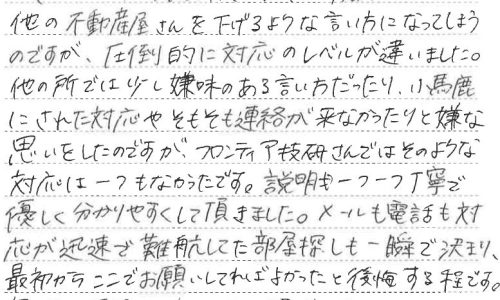 他の不動産屋さんを下げるような言い方になってしまう
のですが、圧倒的に対応のレベルが違いました。
他の所では少し嫌味のある言い方だったり、小馬鹿
にされた対応やそもそも連絡が来なかったりと嫌な
思いをしたのですが、フロンティア技研さんではそのような
対応は一つもなかったです。説明も一つ一つ丁寧で
優しく分かりやすくして頂きました。メールも電話も対
応が迅速で難航してた部屋探しも一瞬で決まり、
最初からここでお願いしてればよかったと後悔する程です。